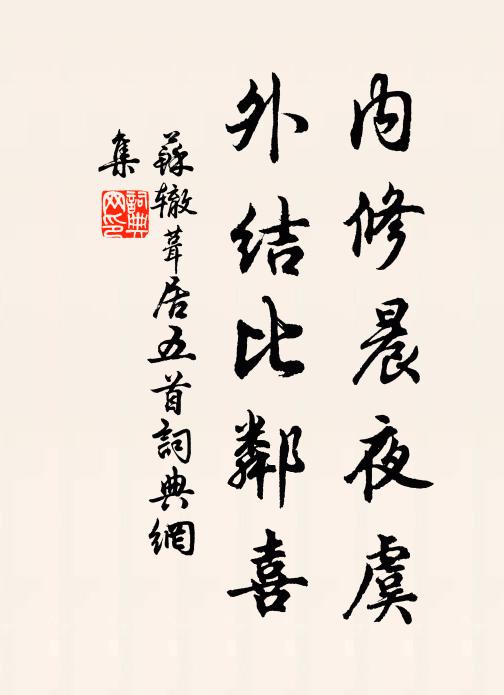 内修晨夜虞
外结比鄰喜
蘇辙葺居五首詞典網
集
詞典
网印